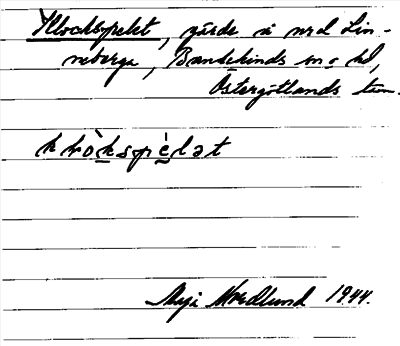 Klockspelet, gärde å nrd Lin-
neberga, Bankekinds sn o hd,
Östergötlands län.
k lròkspèlət
Maja Nordlund 1944.